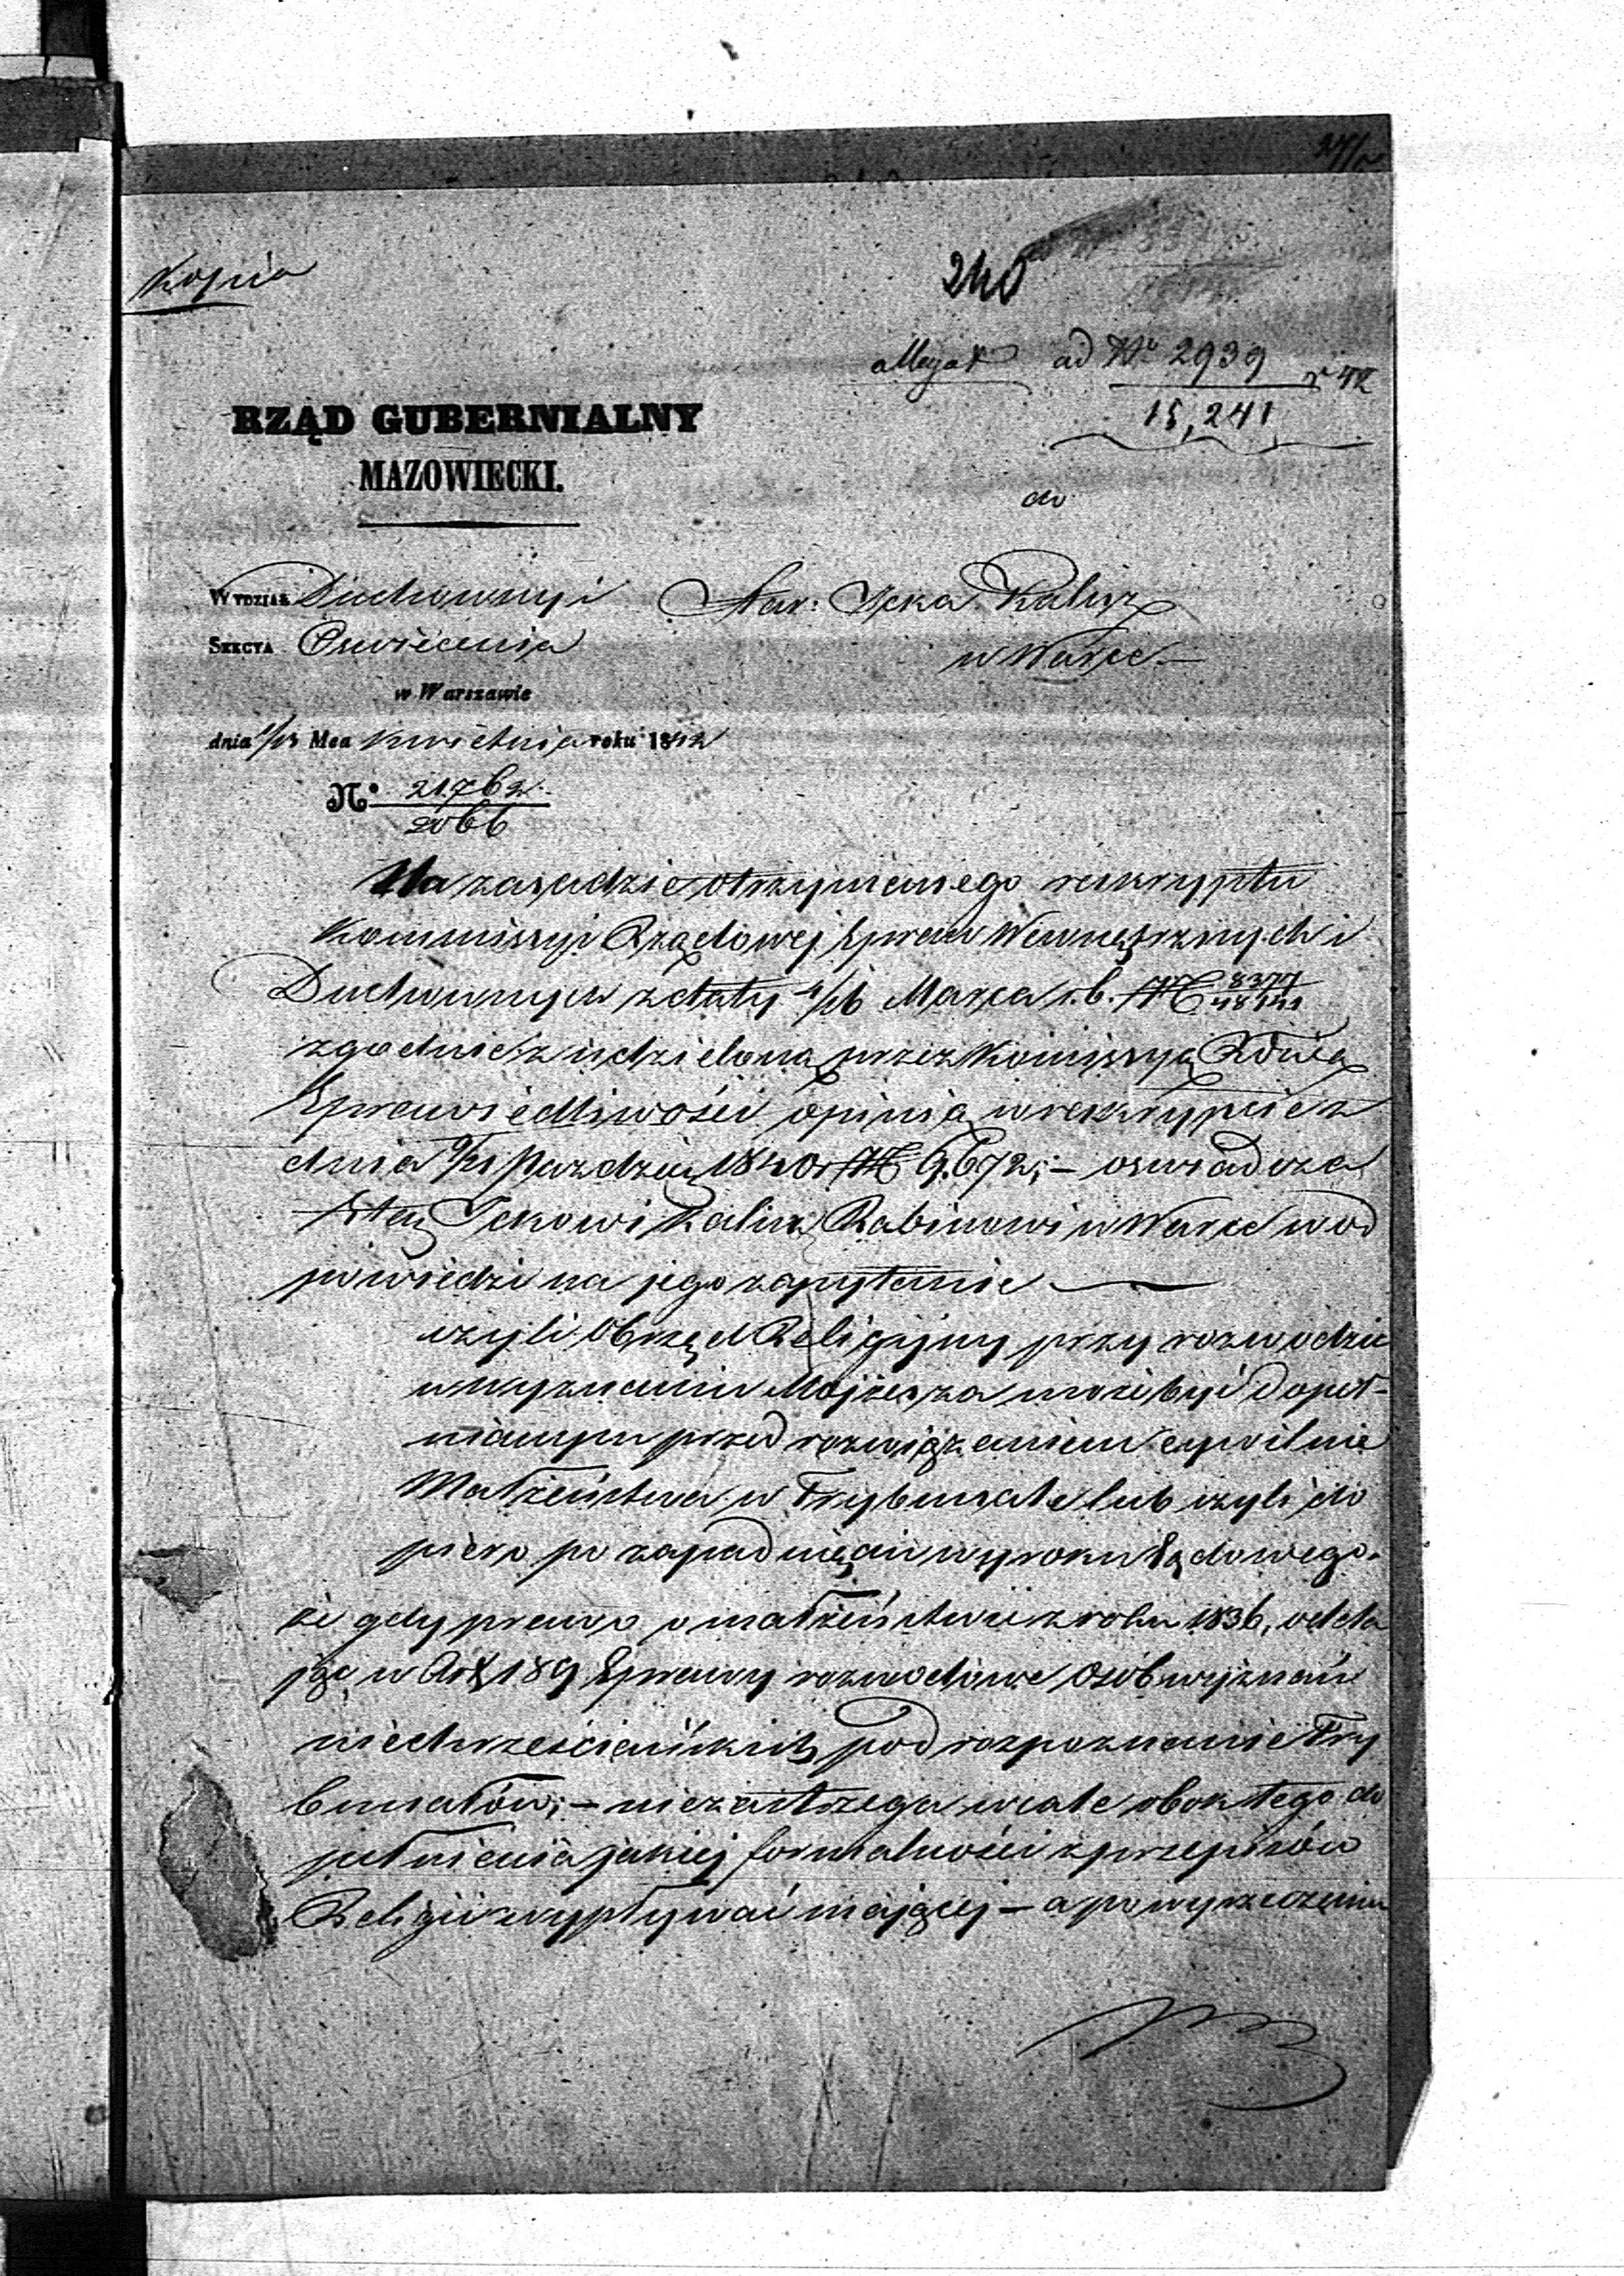 Kopia
240
allegat ad No 2939 r 42
15,241
RZĄD GUBERNIALNY
MAZOWIECKI.
do
WYDZIAŁ Duchowny i
Star: Icka Kalisz
SEKCYA Oswiecenia
w Warce
w Warszawie
dnia 1/13 Mca Kwietnia roku 1842
No 21762
2066
Na zasadzie otrzymanego reskryptu
Kommissyi Rządowej Spraw Wewnętrznych i
Duchownych z daty 4/16 Marca r.b. No
zgodnie z udzieloną przez Komissyą Rdową
Sprawiedliwości opinią w reskrypcie z
dnia 9/21 Pazdzier 1840 r No 9.672; – oswiadcza
Star Ickowi Kalisz Rabinowi w Warce w od
powiedzi na jego zapytanie —
czyli Obrzęd Religijny przy rozwodzie
w wyznaniu Mojżesza może być dopeł-
nianym przed rozwiązaniem cywilnie
Małżeństwa w Trybunale lub czyli do
piero po zapadnięciu wyroku Sądowego.
że gdy prawo o małżeństwie z roku 1836, odda
jąc w Art 189 Sprawy rozwodowe Osób wyznań
niechrześciańskich pod rozpoznanie Try
bunałów; – niezastrzega wcale obok tego do
pełnienia jakiej formalności z przepisów
Religii wypływać mającej – a po wyrzeczeniu